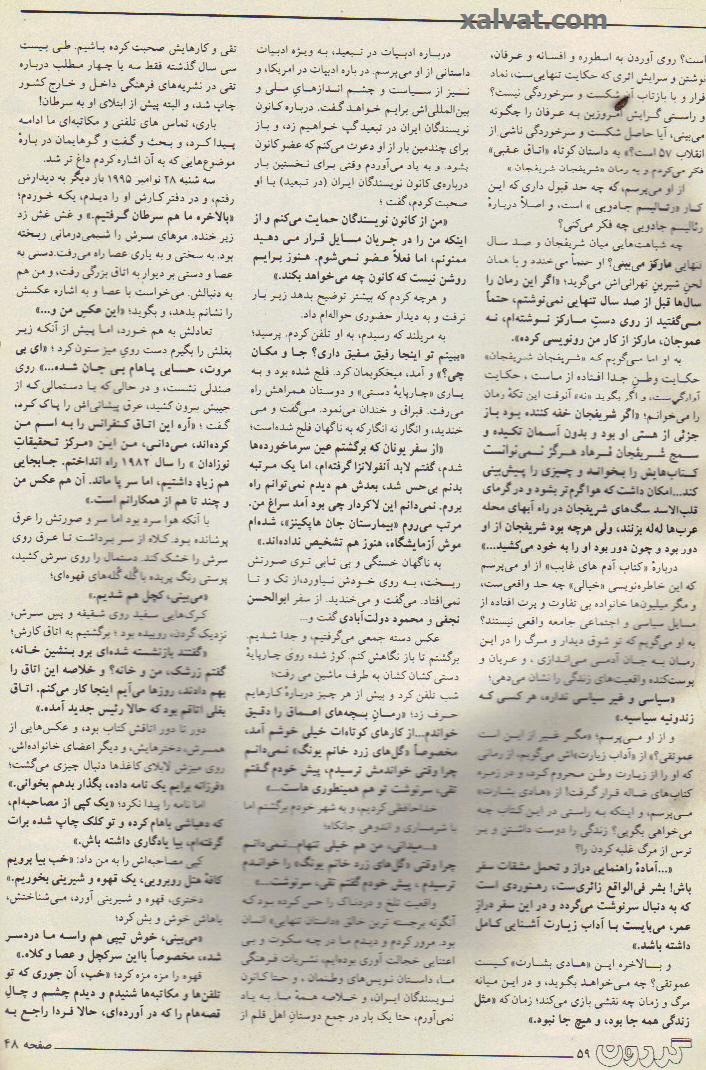 xalvat.com
است؟ روی آوردن به اسطوره و افسانه و عرفان،
نوشتن و سرایش اثری که حکایت تنهایی‌ست، نماد
فرار و یا بازتاب آن شکست و سرخوردگی نیست؟
و راستی گرایش امروزین به عرفان را چگونه
می‌بینی، آیا حاصل شکست و سرخوردگی ناشی از
انقلاب ۵۷ است؟» به داستان کوتاه «اتاق عقبی»
فکر می‌کردم و به رمان «شریفجان شریفجان»
از او می‌پرسم، که چه حد قبول داری که این
کار «رئالیسم جادویی» است، و اصلاً دربارهٔ
رئالیسم جادویی چه فکر می‌کنی؟
چه شباهت‌هایی میان شریفجان و صد سال
تنهایی مارکز می‌بینی؟ او حتماً می‌خندد و با همان
لحن شیرین تهرانی‌اش می‌گوید؛ «اگر این رمان را
سال‌ها قبل از صد سال تنهایی نمی‌نوشتم، حتماً
می‌گفتید از روی دستِ مارکز نوشته‌ام، نه
عموجان، مارکز از کار من رونویسی کرده».
به او اما می‌گویم که «شریفجان شریفجان»
حکایت وطنِ جدا افتاده از ماست، حکایت
آوارگی‌ست، و اگر بگوید «نه» آنوقت این تکهٔ رمان
را می‌خوانم؛ «اگر شریفجان خفه کننده بود باز
جزئی از هستی او بود و بدون آسمان تکیده و
سمج شریفجان فرهاد هرگز نمی‌توانست
کتاب‌هایش را بخواند و چیزی را پیش‌بینی
کند...امکان داشت که هوا گرم‌تر بشود و در گرمای
قلب‌الاسد سگ‌های شریفجان در راه آبهای محله
عرب‌ها له‌له بزنند، ولی هرچه بود شریفجان از او
دور بود و چون دور بود او را به خود می‌کشید...»
دربارهٔ «کتاب آدم های غایب» از او می‌پرسم
که این خاطره‌نویسی «خیالی» چه حد واقعی‌ست،
و مگر میلیون‌ها خانواده بی تفاوت و پرت افتاده از
مسایل سیاسی و اجتماعی جامعه واقعی نیستند؟
به او می‌گویم که تو شوق دیدار و مرگ را در این
رمان به جان آدمی می‌اندازی، و عریان و
پوست‌کنده واقعیت‌های زندگی را نشان می‌دهی؛
«سیاسی و غیر سیاسی نداره، هر کسی که
زندونیه سیاسیه.»
و از او می‌پرسم؛ «مگر غیر از این است
عموتقی؟» از «آداب زیارت»‌اش می‌گویم، از رمانی
که او را از زیارت وطن محروم کرد، و در زمره
کتاب‌های ضاله قرار گرفت! از «هادی بشارت»
می‌پرسم، و اینکه به راستی در این کتاب چه
می‌خواهی بگویی؟ زندگی را دوست داشتن و بر
ترس از مرگ غلبه کردن را؟
«...آمادهٔ راهنمایی دراز و تحمل مشقات سفر
باش! بشر فی‌الواقع زائری‌ست، رهنوردی است
که به دنبال سرنوشت می‌گردد و در این سفر درازِ
عمر، می‌بایست با آداب زیارت آشنایی کامل
داشته باشد.»
و بالاخره این «هادی بشارت» کیست
عموتقی؟ چه می‌خواهد بگوید، و در این میانه
مرگ و زمان چه نقشی بازی می‌کند؛ زمان که «مثل
زندگی همه جا بود، و هیچ جا نبود.»
درباره ادبیات در تبعید، به ویژه ادبیات
داستانی از او می‌پرسم. درباره ادبیات در امریکا، و
نیز از سیاست و چشم اندازهای ملی و
بین‌المللی‌اش برایم خواهد گفت. درباره کانون
نویسندگان ایران در تبعید گپ خواهیم زد، و باز
برای چندمین بار از او دعوت می‌کنم که عضو کانون
بشود. و به یاد می‌آوردم وقتی برای نخستین بار
درباره‌ی کانون نویسندگان ایران (در تبعید) با او
صحبت کردم، گفت؛
«من از کانون نویسندگان حمایت می‌کنم و از
اینکه من را در جریان مسایل قرار می دهید
ممنونم، اما فعلاً عضو نمی‌شوم. هنوز برایم
روشن نیست که کانون چه می‌خواهد بکند.»
و هرچه کردم که بیشتر توضیح بدهد زیر بار
نرفت و به دیدار حضوری حواله‌ام داد.
به مریلند که رسیدم، به او تلفن کردم. پرسید؛
«ببینم تو اینجا رفیق مفیق داری؟ جا و مکان
چی؟» و آمد، میخکوبمان کرد. فلج شده بود و به
یاری «چارپایهٔ دستی» و دوستان همراهش راه
می‌رفت. قبراق و خندان می‌نمود. می‌گفت و می
خندید، و انگار نه انگار که به ناگهان فلج شده‌است؛
«از سفر یونان که برگشتم عین سرماخورده‌ها
شدم، گفتم لابد آنفولانزا گرفته‌ام، اما یک مرتبه
بدنم بی‌حس شد، بعدش هم دیدم نمی‌توانم راه
بروم. نمی‌دانم این لاکردار چی بود آمد سراغ من.
مرتب می‌روم «بیمارستان جان هاپکینز»، شده‌ام
موش آزمایشگاه، هنوز هم تشخیص نداده‌اند.»
به ناگهان خستگی و بی تابی توی صورتش
ریخت، به روی خودش نیاورد، از تک و تا
نمی‌افتاد. می‌گفت و می‌خندید. از سفر ابوالحسن
نجفی و محمود دولت‌آبادی گفت و...
عکس دسته جمعی می‌گرفتیم، و جدا شدیم.
برگشتم تا باز نگاهش کنم. کوژ شده روی چارپایهٔ
دستی کشان کشان به طرف ماشین می رفت؛
شب تلفن کرد و پیش از هر چیز دربارهٔ کارهایم
حرف زد؛ «رمانِ بچه‌های اعماق را دقیق
خواندم...از کارهای کوتاه‌ات خیلی خوشم آمد،
مخصوصاً «گل‌های زرد خانم یونگ» نمی‌دانم
چرا وقتی خواندمش ترسیدم، پیش خودم گفتم
تقی، سرنوشت تو هم همینطوری هاست...»
خداحافظی کردیم، و به شهر خودم برگشتم اما
با شرمساری و اندوهی جانکاه؛
«...میدانی، من هم خیلی تنهام...نمی‌دانم
چرا وقتی «گل‌های زرد خانم یونگ» را خواندم
ترسیدم، پیش خودم گفتم تقی، سرنوشت...»
واقعیت تلخ و دردناک را حس کرده بود که
آنگونه برجسته ترین خالق «داستان تنهایی» انسان
بود. مرور کردم و دیدم ما در چه سکوت و بی
اعتنایی خجالت آوری بوده‌ایم، نشریات فرهنگی
ما، داستان نویس‌های وطنمان، و حتا کانون
نویسندگان ایران، و خلاصه همهٔ ما. به یاد
نمی‌آورم، حتا یک بار در جمع دوستانِ اهل قلم از
تقی و کارهایش صحبت کرده باشیم. طی بیست
سی سال گذشته فقط سه یا چهار مطلب درباره
تقی در نشریه‌های فرهنگی داخل و خارج کشور
چاپ شد، و البته پیش از ابتلای او به سرطان!
باری، تماس های تلفنی و مکاتبه‌ای ما ادامه
پیدا کرد، و بحث و گفت و گوهایمان در بارهٔ
موضوع‌هایی که به آن اشاره کردم داغ تر شد.
سه شنبه ۲۸ نوامبر ۱۹۹۵ بار دیگر به دیدارش
رفتم، و در دفتر کارش او را دیدم، یکه خوردم؛
«بالاخره ما هم سرطان گرفتیم.» و غش غش زد
زیر خنده. موهای سرش را شیمی‌درمانی ریخته
بود. به سختی و به یاری عصا راه می‌رفت. دستی به
عصا و دستی بر دیوار به اتاق بزرگی رفت، و من هم
به دنبالش. می‌خواست با عصا و به اشاره عکسش
را نشانم بدهد، و بگوید؛ «این عکس من و...»
تعادلش به هم خورد، اما پیش از آنکه زیر
بغلش را بگیرم دست روی میز ستون کرد؛ «ای بی
مروت، حسابی پاهام بی جان شده...» روی
صندلی نشست، و در حالی که با دستمالی که از
جیبش بیرون کشید، عرق پیشانی‌اش را پاک کرد،
گفت؛ «آره این اتاق کنفرانس را به اسم من
کرده‌اند، می‌دانی، من این «مرکز تحقیقاتِ
نوزادان» را سال ۱۹۸۲ راه انداختم. جابجایی
هم زیاد داشتیم، اما سر پا ماند. آن هم عکس من
و چند تا هم از همکارانم است.»
با آنکه هوا سرد بود اما سر و صورتش را عرق
پوشانده بود. کلاه از سر برداشت تا عرق روی
سرش را خشک کند. دستمال را روی سرش کشید،
پوستی رنگ پریده با گُله گُله‌های قهوه‌ای؛
«می‌بینی، کچل هم شدیم.»
کرک‌هایی سفید روی شقیقه و پس سرش،
نزدیک گردن، روییده بود؛ برگشتیم به اتاق کارش؛
«گفتند بازنشسته شده‌ای برو بنشین خانه،
گفتم زرشک، من و خانه؟ و خلاصه این اتاق را
بهم دادند، روزها می‌آیم اینجا کار می‌کنم. اتاق
بغلی اتاقم بود که حالا رئیس جدید آمده.»
دور تا دور اتاقش کتاب بود، و عکس‌هایی از
همسرش، دخترهایش، و دیگر اعضای خانواده‌اش.
روی میزش لابلای کاغذها دنبال چیزی می‌گشت؛
«فرزانه برایم یک نامه داده، بگذار بدهم بخوانی.»
اما نامه را پیدا نکرد؛ «یک کپی از مصاحبه‌ام،
که دهباشی باهام کرده و تو کلک چاپ شده برات
گرفته‌ام، بیا یادگاری داشته باش.»
کپی مصاحبه‌اش را به من داد: «خب بیا برویم
کافهٔ هتل روبرویی، یک قهوه و شیرینی بخوریم.»
دختری، قهوه و شیرینی آورد، می‌شناختش،
باهاش خوش و بش کرد؛
«می‌بینی، خوش تیپی هم واسه ما دردسر
شده، مخصوصاً بااین سرکچل و عصا و کلاه.»
قهوه را مزه مزه کرد؛ «خب، آن جوری که تو
تلفن‌ها و مکاتبه‌ها شنیدم و دیدم چشم و چالِ
قصه‌هام را که در آورده‌ای، حالا فردا راجع به
گردون ۵۹
صفحه ۴۸